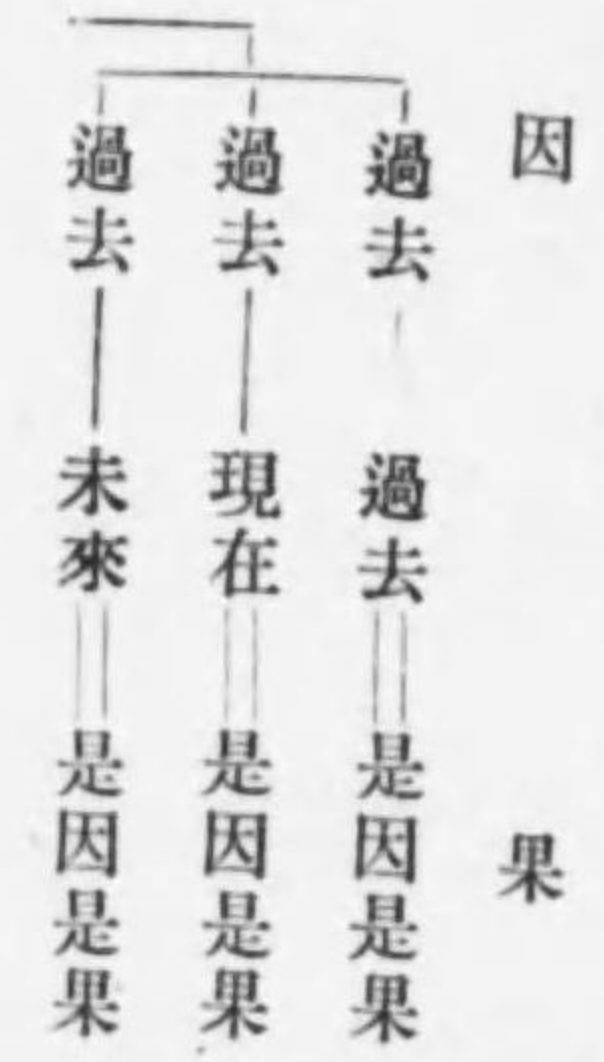 因 果
過去 過去 是因是果
過去 現在 是因是果
過去 未來 是因是果